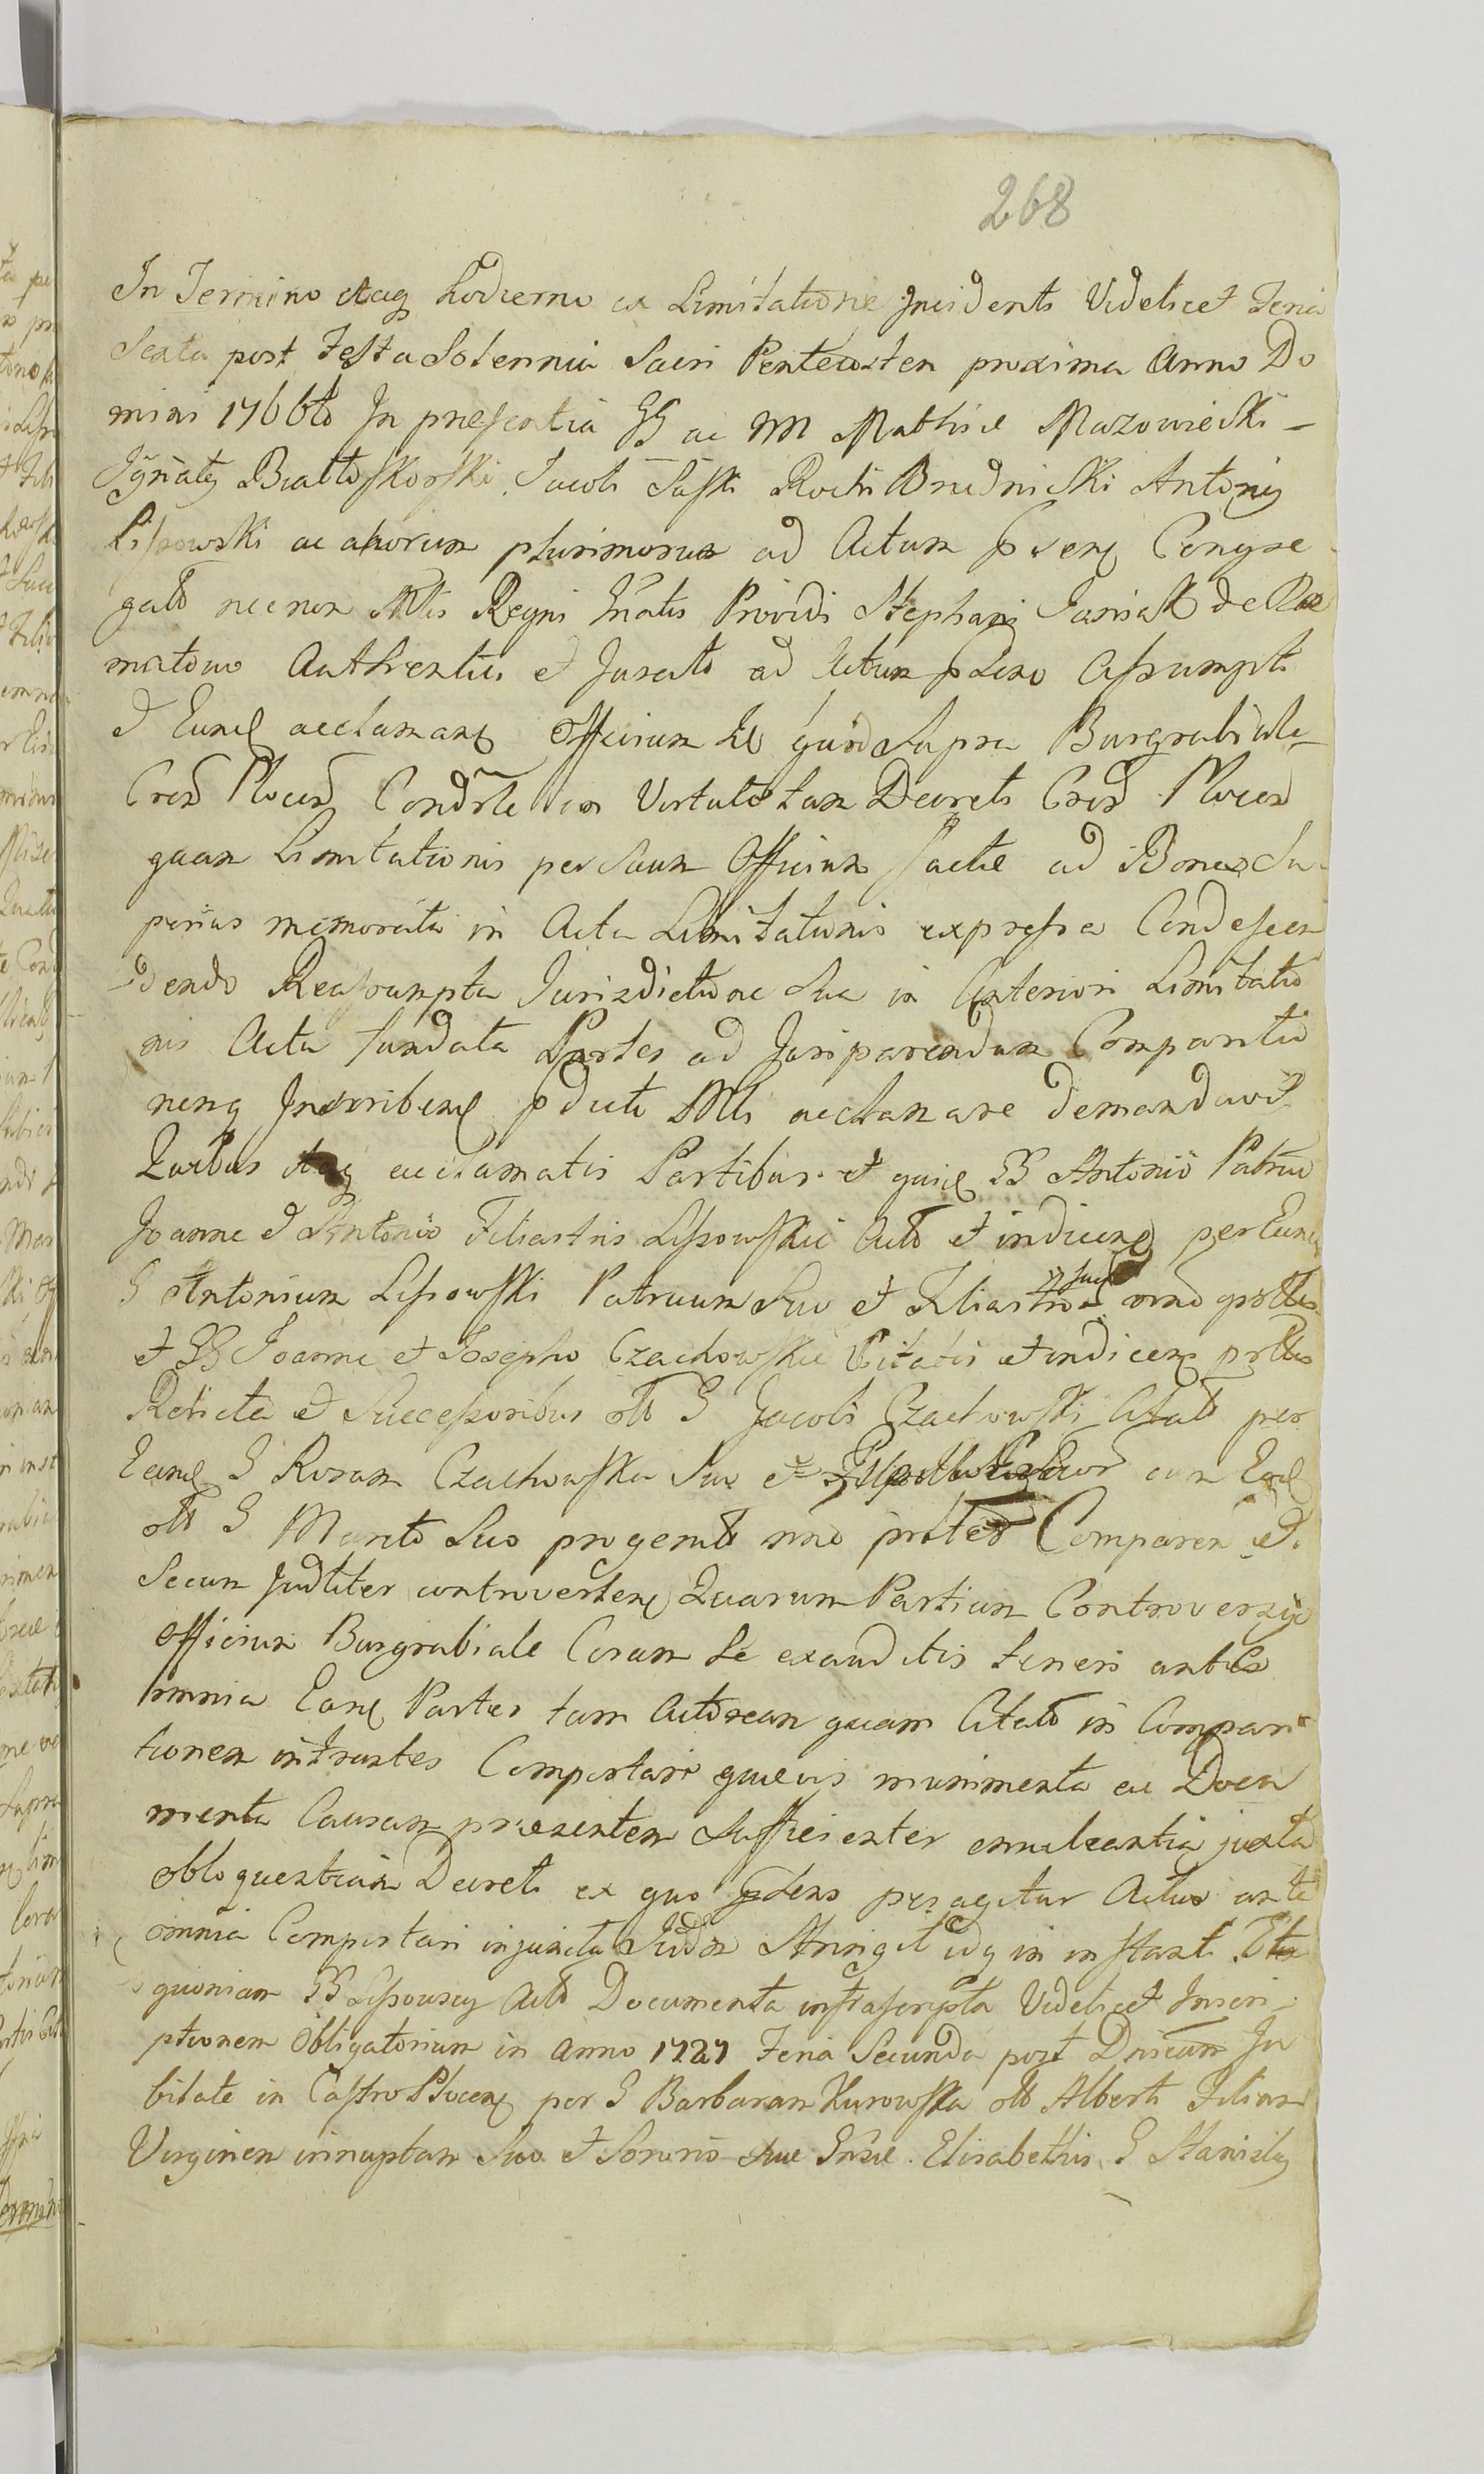 268
In Termino itaq hodierno ex Limitatione Incidenti Videlicet Feria
Sexta post Festa Solennia Sacri Pentecosten proxima Anno Do
mini 1766to In presentia GG ac MM Mathiæ Mazowiecki –
Ignatÿ Białłoskorski Jacobi Saski Rochi Brudnicki Antonÿ
Lissowski ac aliorum plurimorum ad Actum pdsens Congre
gato necnon Mtlis Regni Gnalis Providi Stephani Janiak de
matowo Authentici et Jurato ad Actum pdsens Assumpti
et Eund acclamans Officium Se quod Supra Burgrabiale
Cren Plocen Condsle in Virtute tam Decreti Cren Plocen
quam Limitationis per Suum Officium factæ ad Bona Su
perius memorata in Acta Limitationis expressa Condescen
dendo Reassumpta Jurisdictione Sua in Anteriori Limitatio
nis Acta fundata Partes ad Juriparendum Comparitio
nemq Inscribend pdicti Mtlis acclamare demandavit
Quibus itaq acclamatis Partibus et quid GG Antonio Patruo
Joanne et Antonio Filiastris Lissowskie Acto et indicend per Eund
G Antonium Lissowski Patruum Suo et Filiastror suor nno pdttis
et GG Joanne et Josepho Czachowskie Citatis et indicen prttis
Relicta et Successoribus olt G Jacobi Czachowski Citato per
Eand G Rosam Czachowska Suo et cum Eod
olt G Marito Suo progenito nno prolted Comparen et
Secum Judliter controverten Quarum Partium Controversijs
Officium Burgrabiale Coram Se exauditis teneri ante
omnia Eand Partes tam Actoream quam Citato in Compari
tionem intrantes Comportari quævis munimenta ac Docu
menta Causam præsentem Sufficienter enucleantia juxta
obloquentiam Decreti ex quo pdsens peragitur Actus ante
omnia Comportari injuncta Stringit idq in instanti Et
quoniam GG Lissowscy Acto Documenta infrascripta Videlicet Inscri
ptionem Obligatoriam in Anno 1727 Feria Secunda post Dnicam Ju
bilate in Castro Plocen per G Barbaram Kurowska olt Alberti Filiam
Virginem innuptam Suo et Sororis Suæ Gnæ Elisabethis G Stanislÿ